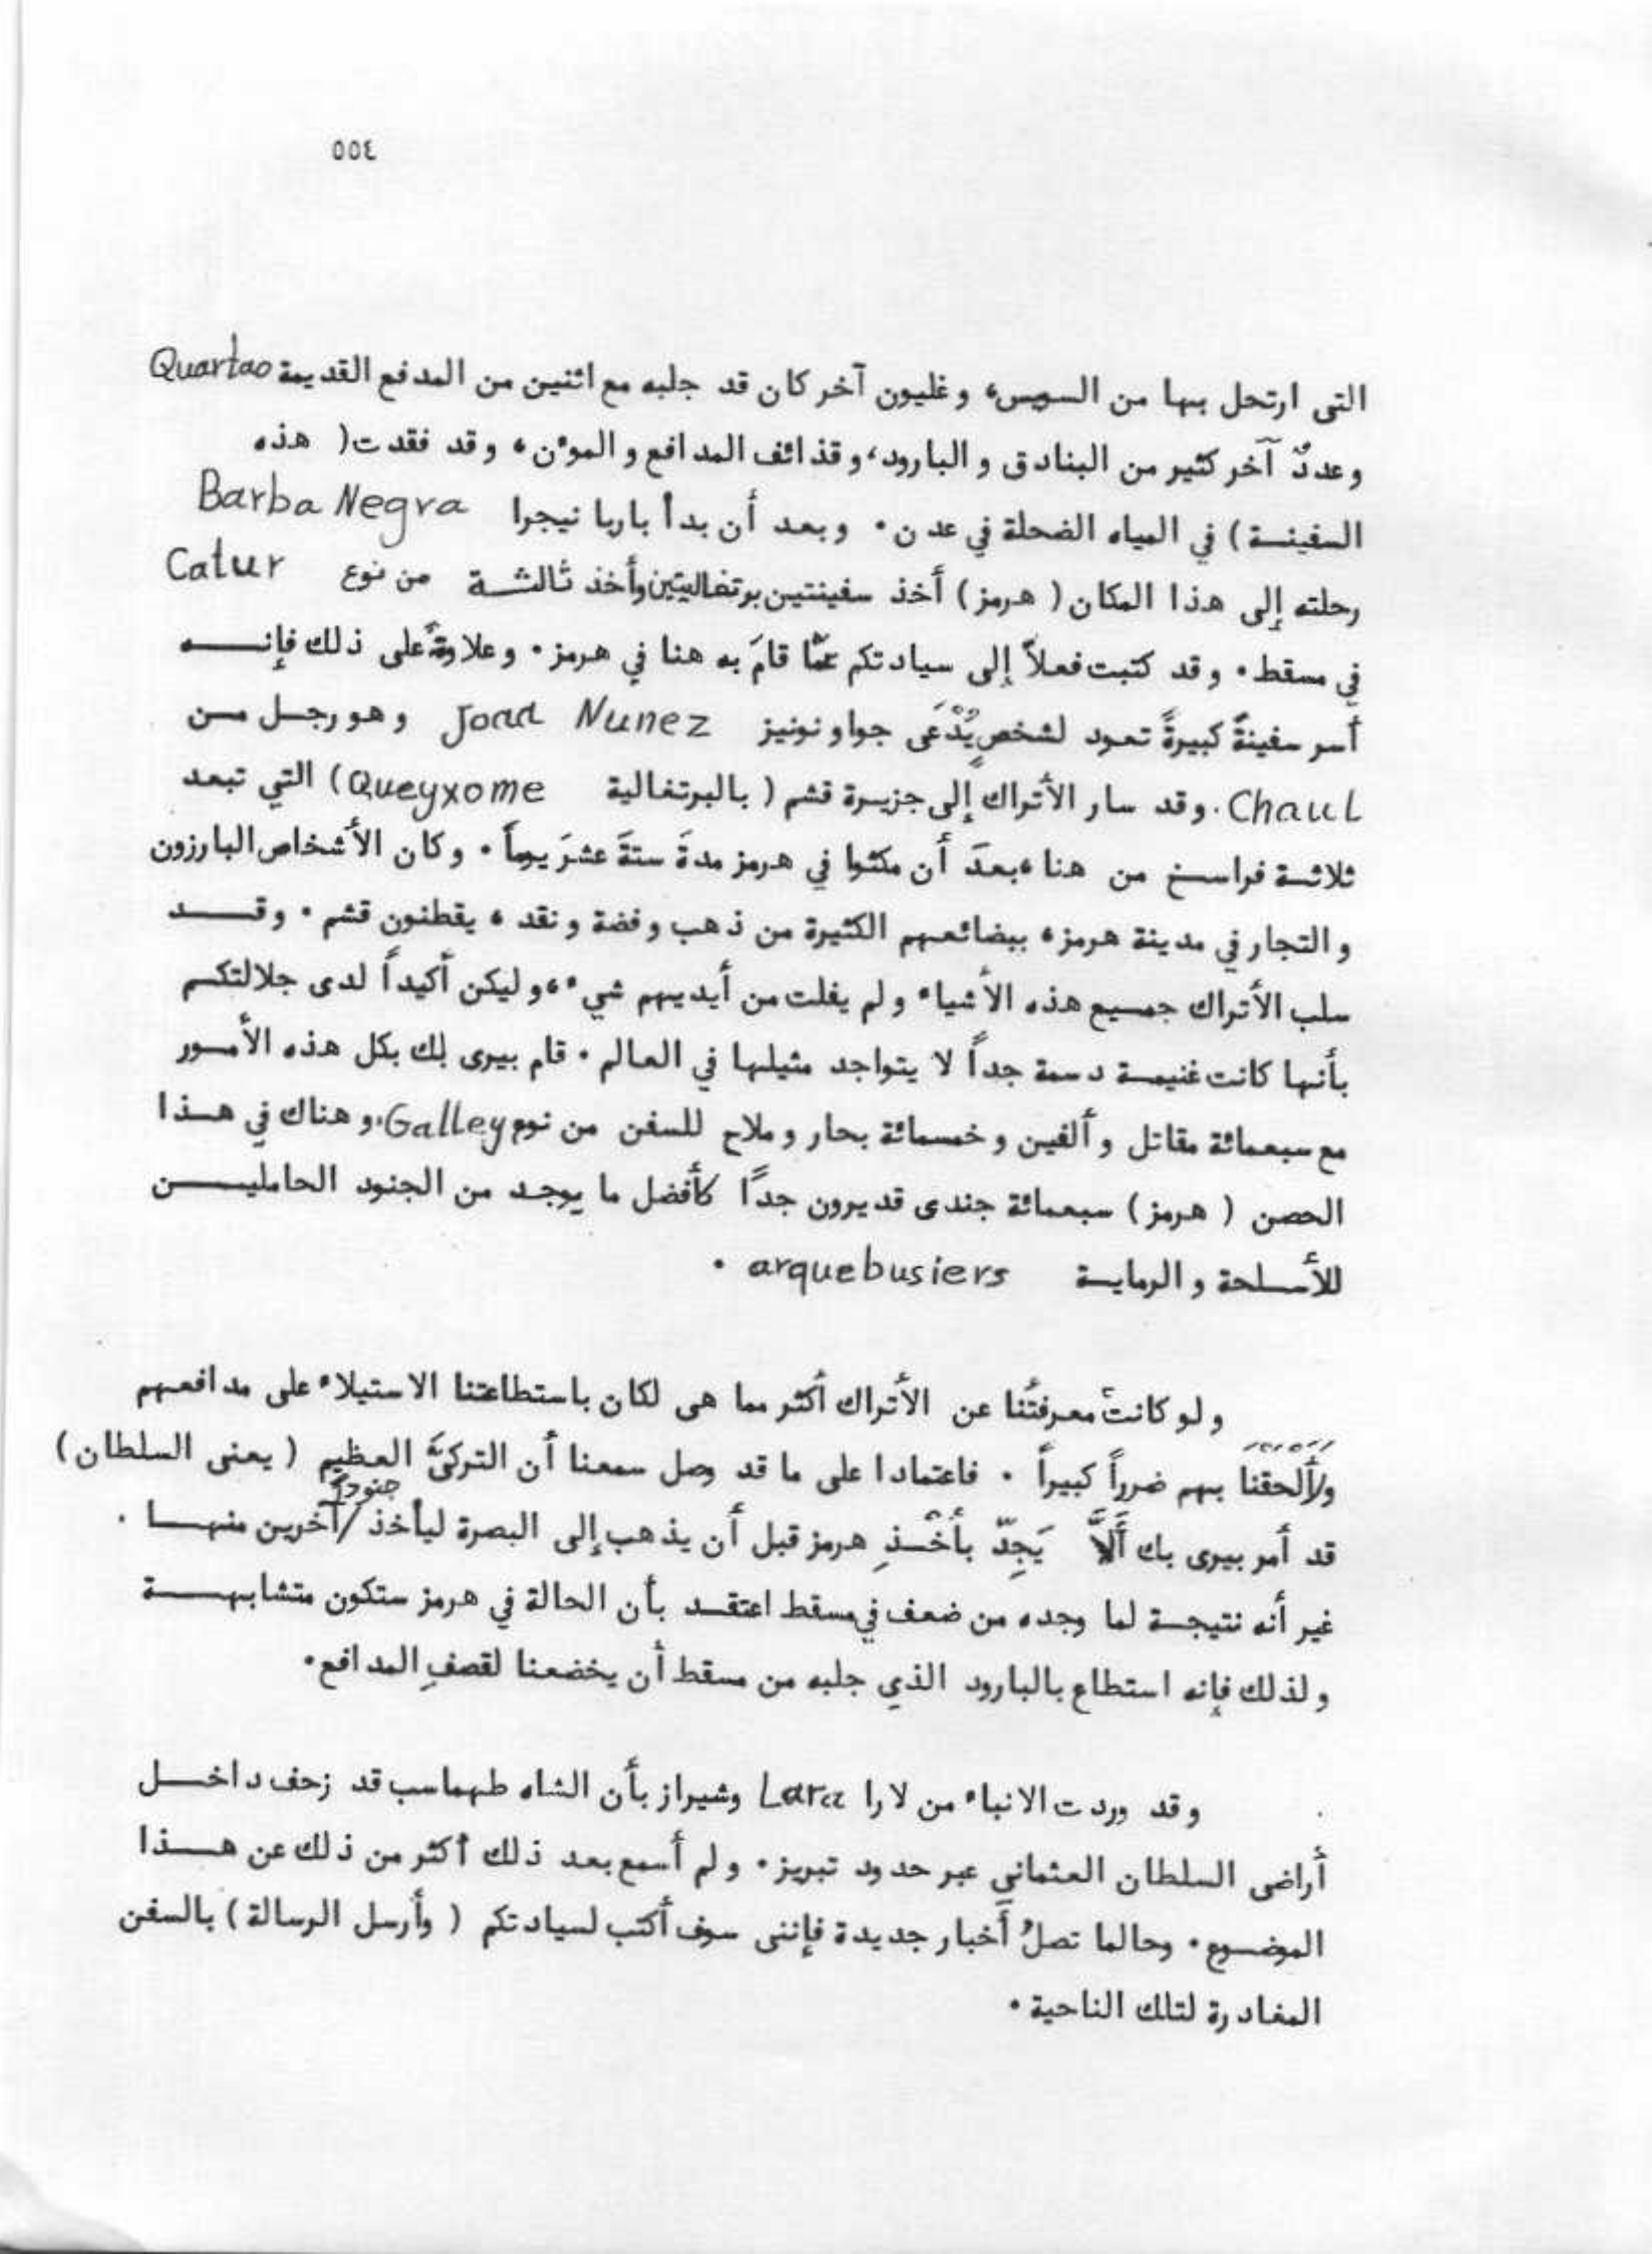 ٥٥٤
التى ارتحل بها من السويس، وغليون آخر كان قد جلبه مع اثنين من المدفع القديمة Quartao
وعددٌ آخر كثير من البنادق والبارود، وقذائف المدافع والمؤن، وقد فقدت ( هذه
السفينة ) في المياه الضحلة في عدن . وبعد أن بدأ باربا نيجرا Barba Negra
رحلته إلى هذا المكان ( هرمز ) أخذ سفينتين برتغاليتين وأخذ ثالثة من نوع Catur
في مسقط . وقد كتبت فعلاً إلى سيادتكم عمّا قامَ به هنا في هرمز . وعلاوةً على ذلك فإنه
أسر سفينةً كبيرةً تعود لشخصٍ يُدْعَى جواو نونيز Joad Nunez وهو رجل من
Chaul . وقد سار الأتراك إلى جزيرة قشم ( بالبرتغالية Queyxome ) التي تبعد
ثلاثة فراسخ من هنا ، بعدَ أن مكثوا في هرمز مدةَ ستةَ عشرَ يوماً . وكان الأشخاص البارزون
والتجار في مدينة هرمز، ببضائعهم الكثيرة من ذهب وفضة ونقد ، يقطنون قشم . وقد
سلب الأتراك جميع هذه الأشياء ولم يفلت من أيديهم شيء ، وليكن أكيداً لدى جلالتكم
بأنها كانت غنيمة دسمة جداً لا يتواجد مثيلها في العالم . قام بيرى بك بكل هذه الأمور
مع سبعمائة مقاتل وألفين وخمسمائة بحار وملاح للسفن من نوع Galley . وهناك في هذا
الحصن ( هرمز ) سبعمائة جندى قديرون جداً كأفضل ما يوجد من الجنود الحاملين
للأسلحة والرماية arquebusiers .
ولو كانتْ معرفتُنا عن الأتراك أكثر مما هى لكان باستطاعتنا الاستيلاء على مدافعهم
ولأَلْحَقْنَا بهم ضرراً كبيراً . فاعتمادا على ما قد وصل سمعنا أن التركىَّ العظيم ( يعنى السلطان )
قد أمر بيرى بك أَلاَّ يَجِدّ بأَخْذِ هرمز قبل أن يذهب إلى البصرة ليأخذ / جنوداً آخرين منها .
غير أنه نتيجة لما وجده من ضعف في مسقط اعتقد بأن الحالة في هرمز ستكون متشابهة
ولذلك فإنه استطاع بالبارود الذي جلبه من مسقط أن يخضعنا لقصفِ المدافع .
وقد وردت الانباء من لارا Lara وشيراز بأن الشاه طهماسب قد زحف داخل
أراضى السلطان العثماني عبر حدود تبريز . ولم أسمع بعد ذلك أكثر من ذلك عن هذا
الموضوع . وحالما تصلُ أخبار جديدة فإننى سوف أكتب لسيادتكم ( وأرسل الرسالة ) بالسفن
المغادرة لتلك الناحية .